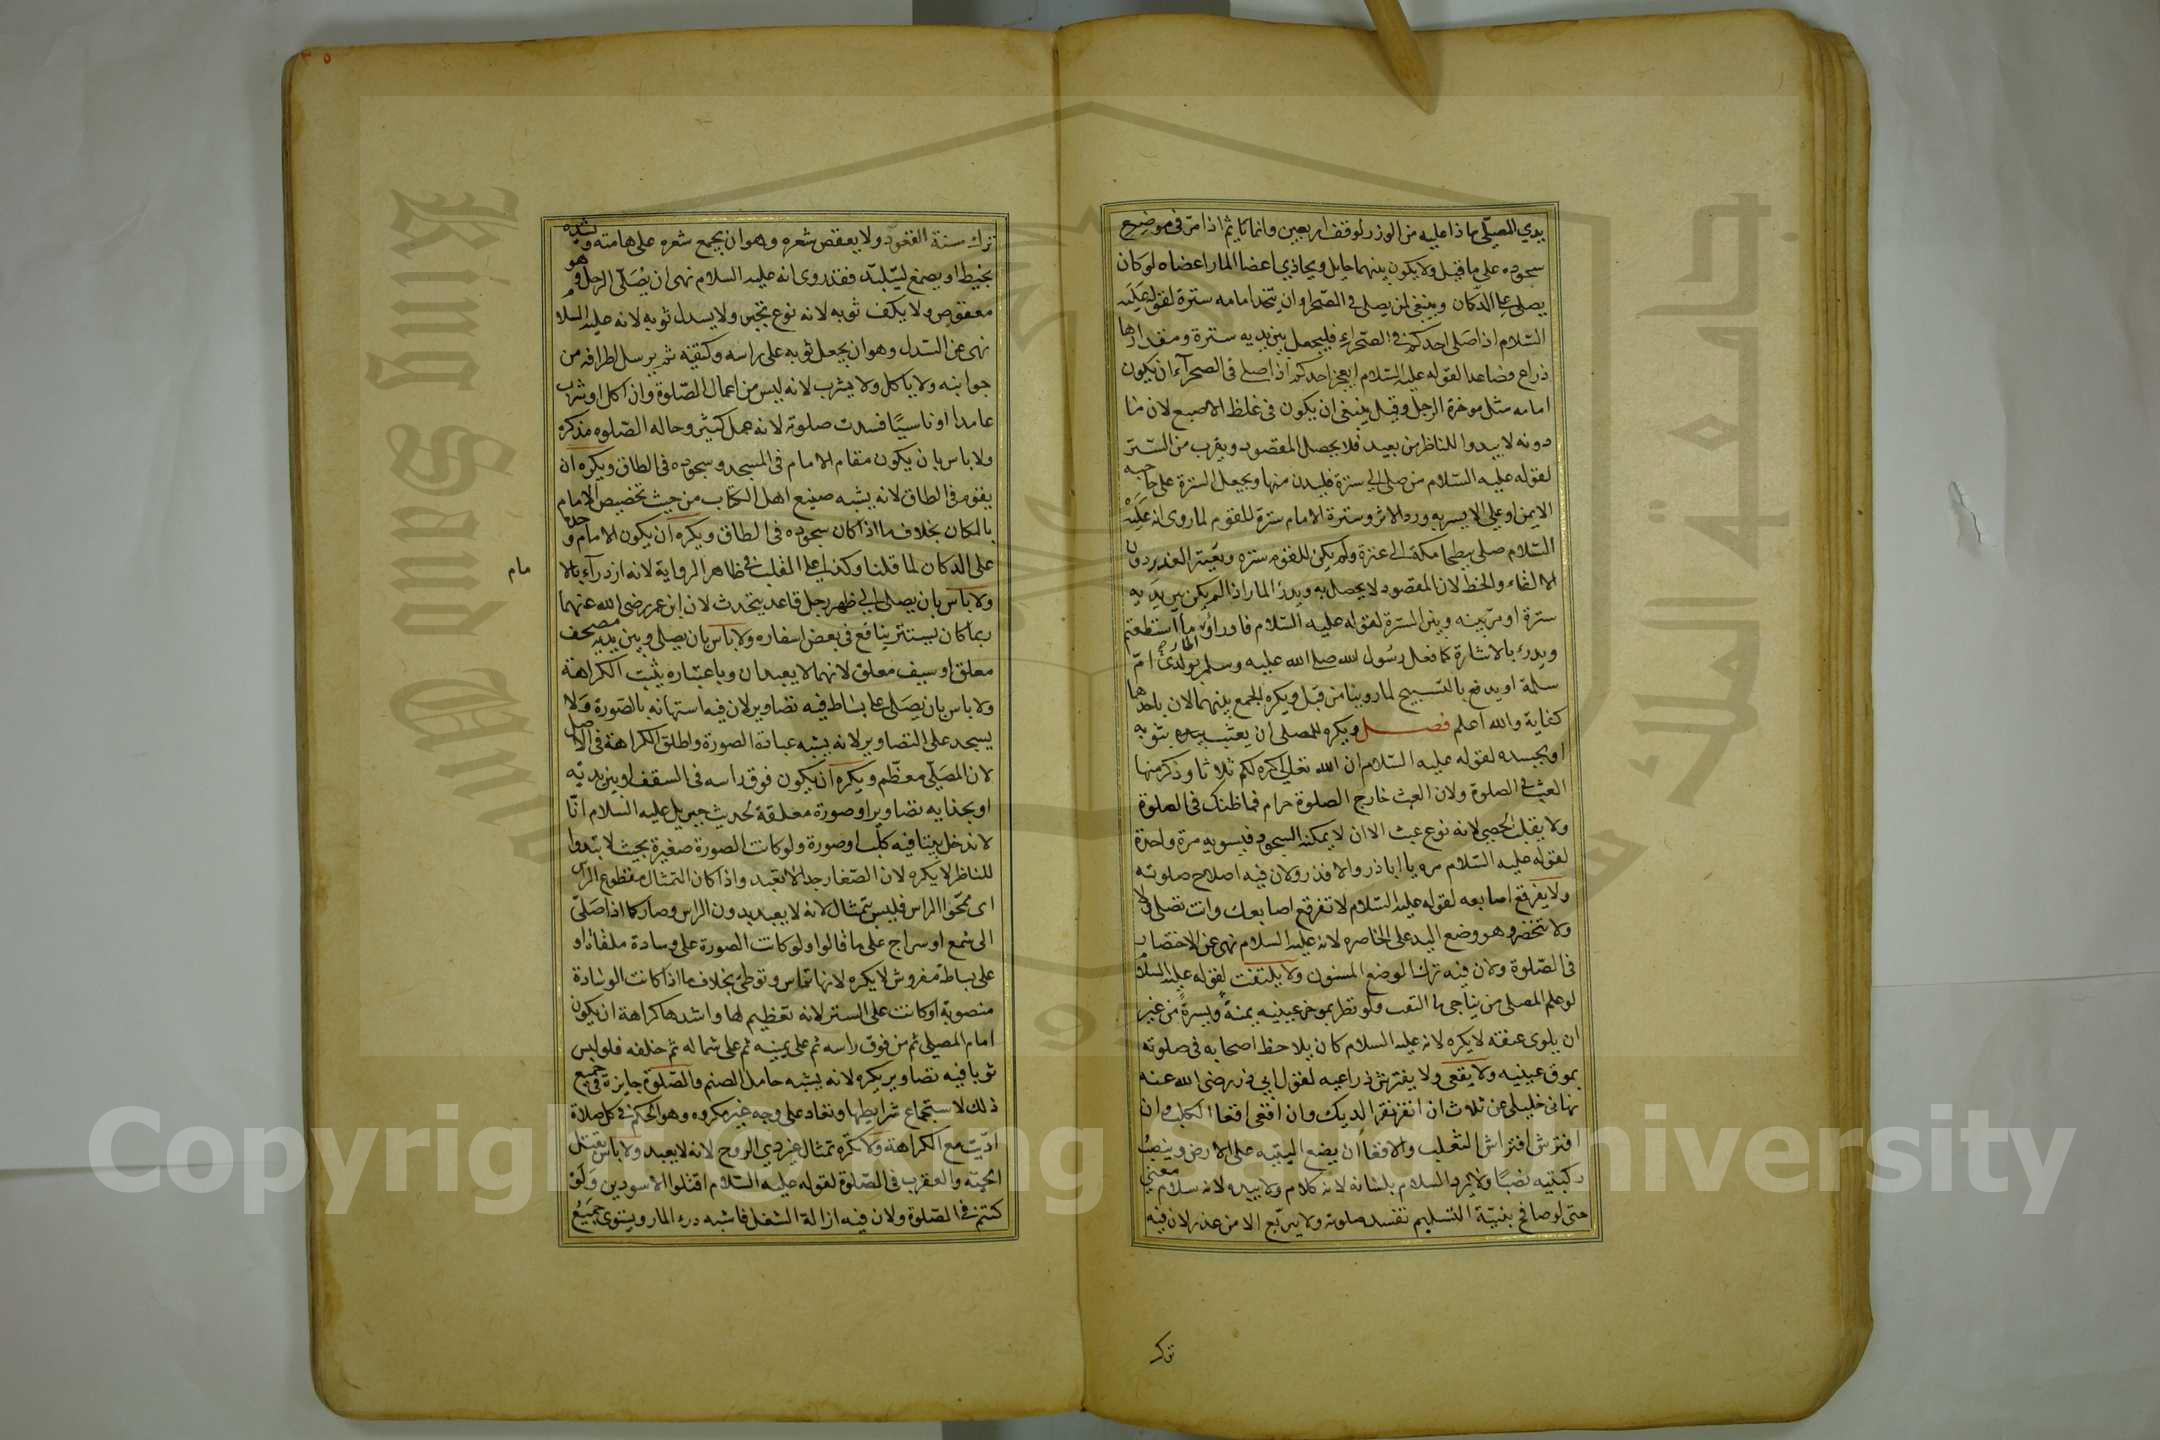 يدي المصلي ماذا عليه من الوزر لوقف اربعين وانما ياثم اذا مر في موضع
سجوده على ما قيل ولا يكون بينهما حايل ويحاذي اعضا المار اعضاه لو كان
يصلي على الدكان وينبغي لمن يصلي في الصحرا وان يتخذ امامه سترة لقوله عليه
السلام اذا صلى احدكم في الصحراء فليجعل بين يديه سترة ومقدارها
ذراع فصاعدا لقوله عليه السلام ايعجز احدكم اذا صلى في الصحرآء ان يكون
امامه مثل موخرة الرحل وقيل ينبغي ان يكون في غلظ الاصبع لان ما
دونه لا يبدوا للناظر من بعيد فلا يحصل المقصود ويقرب من الستر
لقوله عليه السلام من صلى الى سترة فليدن منها ويجعل السترة على حاجبه
الايمن او على الايسر به ورد الاثر وسترة الامام سترة للقوم لما روى انه عليه
السلام صلى ببطحا مكة الى عنزة ولم يكن للقوم ستره ويعتبر الغرز دون
الالقاء والخط لان المقصود لا يحصل به ويدرأ المار اذا لم يكن بين يديه
سترة او مر بينه وبين السترة لقوله عليه السلام فادراوا ما استطعتم
ويدرء بالاشارة كما فعل رسول الله صلى الله عليه وسلم بولدي ام
سلمة او يدفع بالتسبيح لما روينا من قبل ويكره الجمع بينهما لان باحدهما
كفاية والله اعلم فصل ويكره للمصلي ان يعبث بيده بثوبه
او بجسده لقوله عليه السلام ان الله تعالى كره لكم ثلاثا وذكر منها
العبث في الصلوة ولان العبث خارج الصلوة حرام فما ظنك في الصلوة
ولا يقلب الحصى لانه نوع عبث الا ان لا يمكنه السجود فيسويه مرة واحدة
لقوله عليه السلام مره يا ابا ذر والا فذر ولان فيه اصلاح صلوته
ولا يفرقع اصابعه لقوله عليه السلام لا تفرقع اصابعك وانت تصلي ولا
ولا يتخصر وهو وضع اليد على الخاصره لانه عليه السلام نهى عن الاختصار
في الصلوة ولان فيه ترك الوضع المسنون ولا يلتفت لقوله عليه السلام
لو علم المصلي من يناجي ما التفت ولو نظر بموخر عينيه يمنة ويسرة من غير
ان يلوى عنقه لا يكره لانه عليه السلام كان يلاحظ اصحابه في صلوته
بموق عينيه ولا يقعى ولا يفترش ذراعيه لقول ابي ذر رضى الله عنه
نهاني خليلي عن ثلاث ان انقر نقر الديك وان اقعى اقعا الكلب وان
افترش افتراش الثعلب والاقعا ان يضع اليتيه على الارض وينصب
ركبتيه نصبا ولا يرد السلام بلسانه لانه كلام ولا بيده لانه سلام معنى
حتى لو صافح بنية التسليم تفسد صلوته ولا يتربع الا من عذر لان فيه
ترك
ترك سنة القعود ولا يعقص شعره وهو ان يجمع شعره على هامته ويشده
بخيط او بصمغ ليتلبد فقد روى انه عليه السلام نهى ان يصلي الرجل وهو
معقوص ولا يكف ثوبه لانه نوع تجبر ولا يسدل ثوبه لانه عليه السلام
نهى عن السدل وهو ان يجعل ثوبه على راسه وكتفيه ثم يرسل اطرافه من
جوانبه ولا ياكل ولا يشرب لانه ليس من اعمال الصلوة وان اكل او شرب
عامدا او ناسيا فسدت صلوته لانه عمل كثير وحاله الصلوه مذكره
ولا باس بان يكون مقام الامام في المسجد وسجوده في الطاق ويكره ان
يقوم في الطاق لانه يشبه صنيع اهل الكتاب من حيث تخصيص الامام
بالمكان بخلاف ما اذا كان سجوده في الطاق ويكره ان يكون الامام وحده
على الدكان لما قلنا وكذا على القلب في ظاهر الرواية لانه ازدرآء بالا
مام
ولا باس بان يصلى الى ظهر رجل قاعد يتحدث لان ابن عمر رضى الله عنهما
ربما كان يستتر بنافع في بعض اسفاره ولا باس بان يصلي وبين يديه مصحف
معلق او سيف معلق لانهما لا يعبدان وباعتباره يثبت الكراهة
ولا باس بان يصلى على بساط فيه تصاوير لان فيه استهانة بالصورة ولا
يسجد على التصاوير لانه يشبه عبادة الصورة واطلق الكراهة في الاصل
لان المصلى معظم ويكره ان يكون فوق راسه في السقف او بين يديه
او بحذايه تصاوير او صورة معلقة لحديث جبريل عليه السلام انا
لا ندخل بيتا فيه كلب او صورة ولو كانت الصورة صغيرة بحيث لا يبدوا
للناظر لا يكره لان الصغار جدا لا تعبد واذا كان التمثال مقطوع الراس
اى ممحوا الراس فليس بتمثال لانه لا يعبد بدون الراس وصار كما اذا صلى
الى شمع او سراج على ما قالوا ولو كانت الصورة على وسادة ملقاة او
على بساط مفروش لا يكره لانها تداس وتوطئ بخلاف ما اذا كانت الوسادة
منصوبة او كانت على الستر لانه تعظيم لها واشدها كراهة ان يكون
امام المصلي ثم من فوق راسه ثم على يمينه ثم على شماله ثم خلفه فلو لبس
ثوبا فيه تصاوير يكره لانه يشبه حامل الصنم والصلوة جايزة في جميع
ذلك لاستجماع شرايطها وتعاد على وجه غير مكروه وهو الحكم في كل صلاة
اديت مع الكراهة ولا تكره تمثال غير ذي الروح لانه لا يعبد ولا باس بقتل
الحية والعقرب في الصلوة لقوله عليه السلام اقتلوا الاسودين ولو
كنتم في الصلوة ولان فيه ازالة الشغل فاشبه درء المار ويستوى جميع
Copyright © King Saud University
King Saud University
جامعة الملك سعود